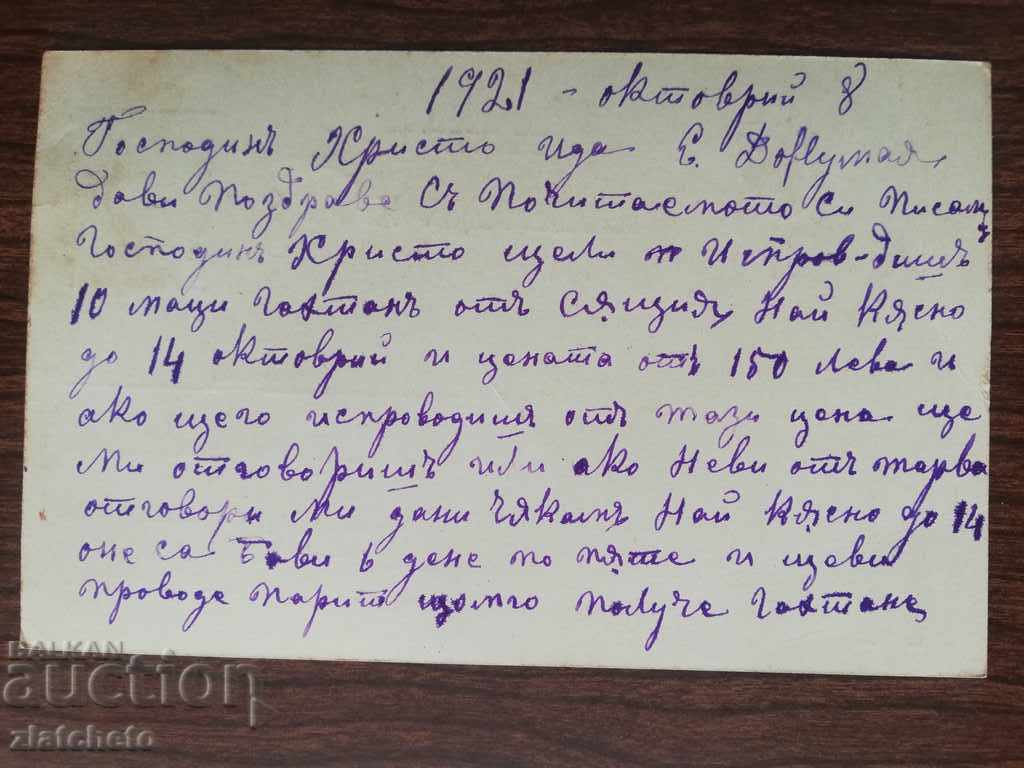 1921 - октоврий 8
Господинъ Христо ида Е.
Дави Поздрава Съ Почитаемото Си Писом
Господинъ Христо щели Испров-дишъ
10 маци гактанъ отъ Най Кясно
до 14 октоврий и цената отъ 150 лева и
ако щего испроводиш отъ тази цена ще
Ми отговоришъ или ако Неви отъ тарва
отговори Ми дани Чякамъ Най Кясно до 14
оне са бави 6 дене по пяте и щеви
проводе парит щомго получе гактане
BALKAN
auction
zlatcheto